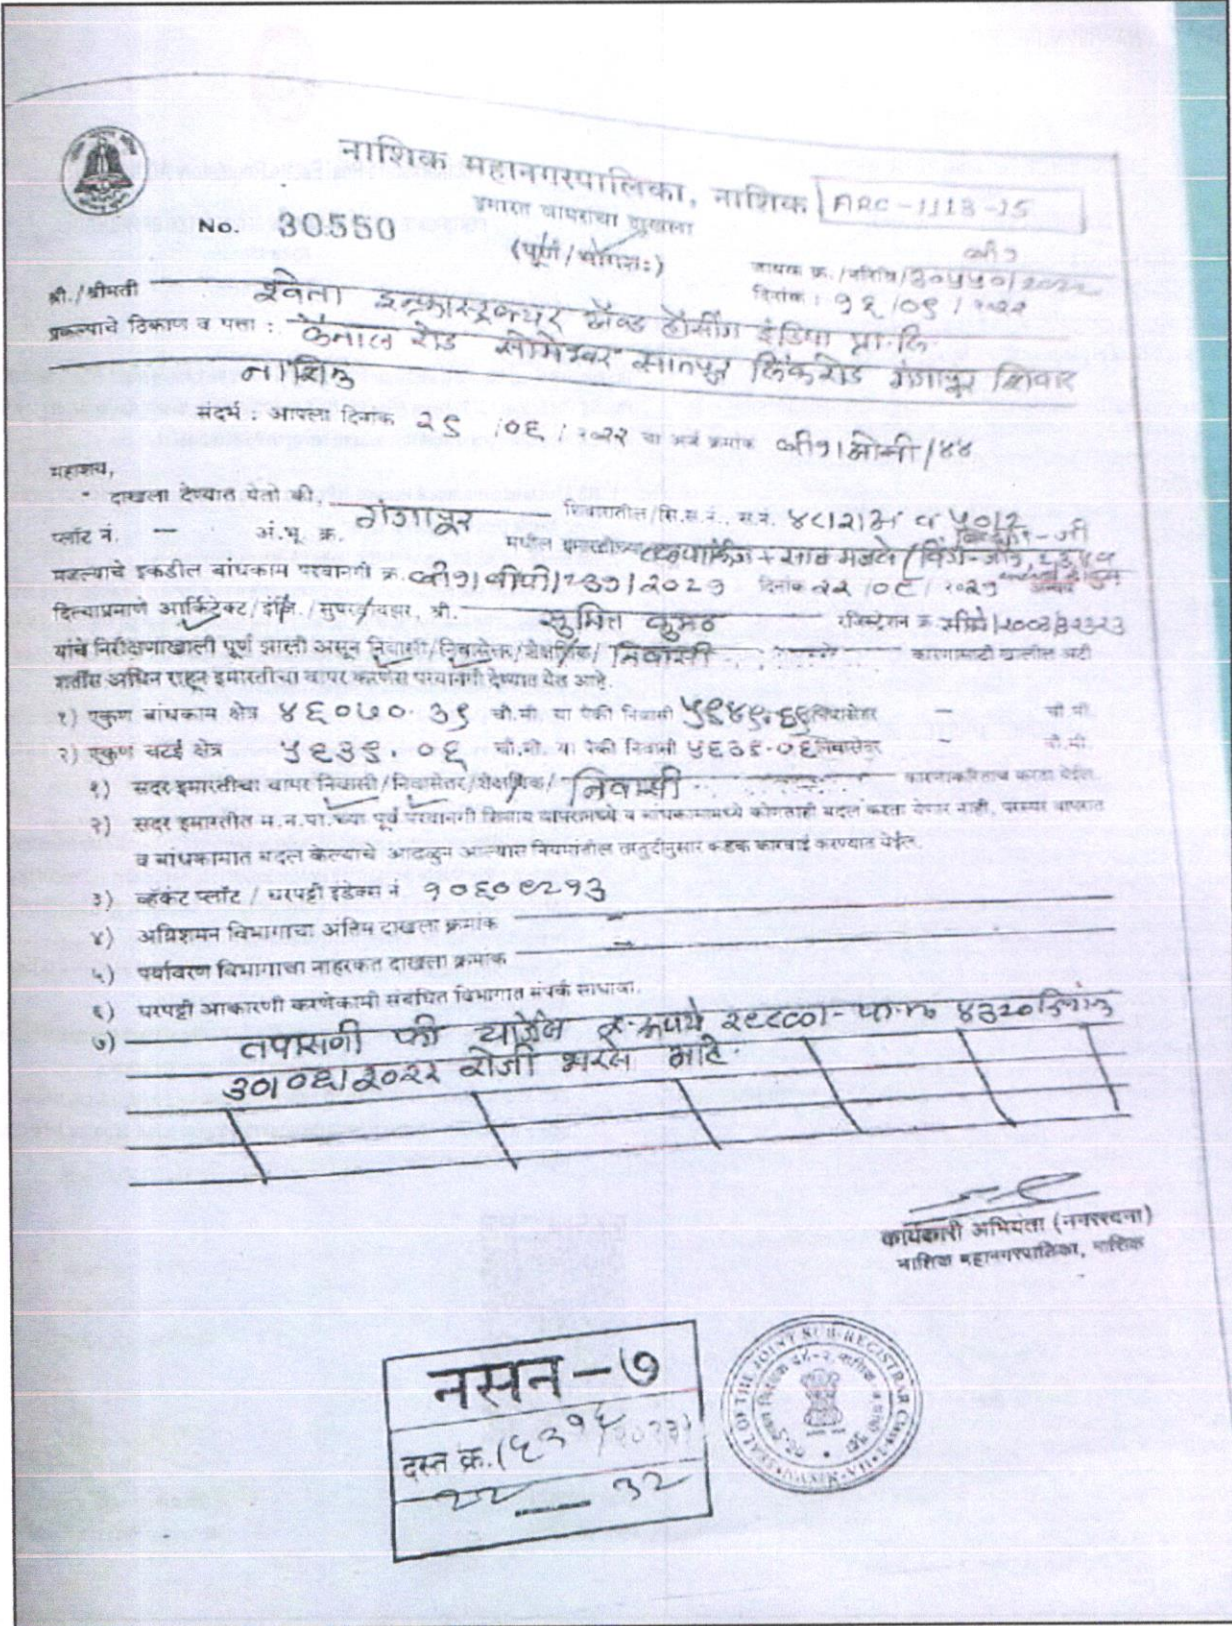 नाशिक महानगरपालिका, नाशिक
ARC-1113-15
इमारत वापराचा दाखला
No. 30550
(पूर्ण/भागशः)
जावक क्र./नरवि/३०५५०/२०२२
दिनांक : १६/०९/२०२२
श्री./श्रीमती श्वेता इन्फ्रास्ट्रक्चर अॅन्ड हौसींग इंडिया प्रा.लि.
प्रकल्पाचे ठिकाण व पत्ता : कॅनाल रोड सोमेश्वर सातपूर लिंकरोड गंगापूर शिवार
नाशिक
संदर्भ : आपला दिनांक २९/०६/२०२२ चा अर्ज क्रमांक सी१/ओसी/४४
महाशय,
दाखला देण्यात येतो की, गंगापूर शिवारातील/सि.स.नं., स.नं. ४८/२/अ व ५०/२
प्लॉट नं. - अं.भू. क्र. मधील इमारतीच्या + सात मजले
मजल्याचे इकडील बांधकाम परवानगी क्र. सी१/बीपी/२३१/२०२१ दिनांक २२/०९/२०२१
दिल्याप्रमाणे आर्किटेक्ट/इंजि./सुपरवायझर, श्री. सुमित कुमठ रजिस्ट्रेशन क्र. सीए/२००३/३२३२३
यांचे निरीक्षणाखाली पूर्ण झाली असून निवासी/निवासेत्तर/शैक्षणिक/ निवासी कारणासाठी खालील अटी
शर्तीस अधिन राहून इमारतीचा वापर करणेस परवानगी देण्यात येत आहे.
१) एकुण बांधकाम क्षेत्र ४६०७०.३९ चौ.मी. या पैकी निवासी ५९४९.६९ निवासेत्तर - चौ.मी.
२) एकुण चटई क्षेत्र ५६३९.०६ चौ.मी. या पैकी निवासी ५६३९.०६ निवासेत्तर - चौ.मी.
१) सदर इमारतीचा वापर निवासी/निवासेत्तर/शैक्षणिक/ निवासी कारणाकरिताच करता येईल.
२) सदर इमारतीत म.न.पा.च्या पूर्व परवानगी शिवाय वापरामध्ये व बांधकामामध्ये कोणताही बदल करता येणार नाही, परस्पर वापरात
व बांधकामात बदल केल्याचे आढळुन आल्यास नियमांतील तरतुदीनुसार कडक कारवाई करण्यात येईल.
३) व्हॅकंट प्लॉट / घरपट्टी इंडेक्स नं १०६०९२१३
४) अग्निशमन विभागाचा अंतिम दाखला क्रमांक -
५) पर्यावरण विभागाचा नाहरकत दाखला क्रमांक -
६) घरपट्टी आकारणी करणेकामी संबंधित विभागात संपर्क साधावा.
७) तपासणी फी रुपये २९८००/- पा.क्र ४३२० दिनांक
३०/०६/२०२२ रोजी भरले आहे.
कार्यकारी अभियंता (नगररचना)
नाशिक महानगरपालिका, नाशिक
नसन-७
दस्त क्र. (६३१६/२०२३)
२२ — ३२
SEAL OF THE JOINT SUB-REGISTRAR